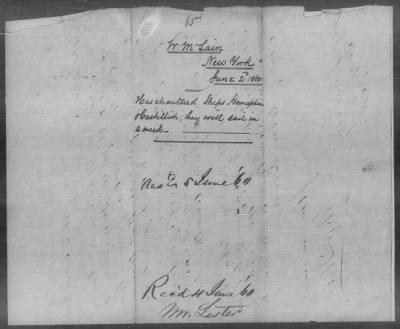 65
W. McLain
New York
June 2d 1860
Has chartered Ships Hemisphere
& Castillion; they will sail in
a week.
5 June '60
Rec'd 4 June '60
Mr. Lester